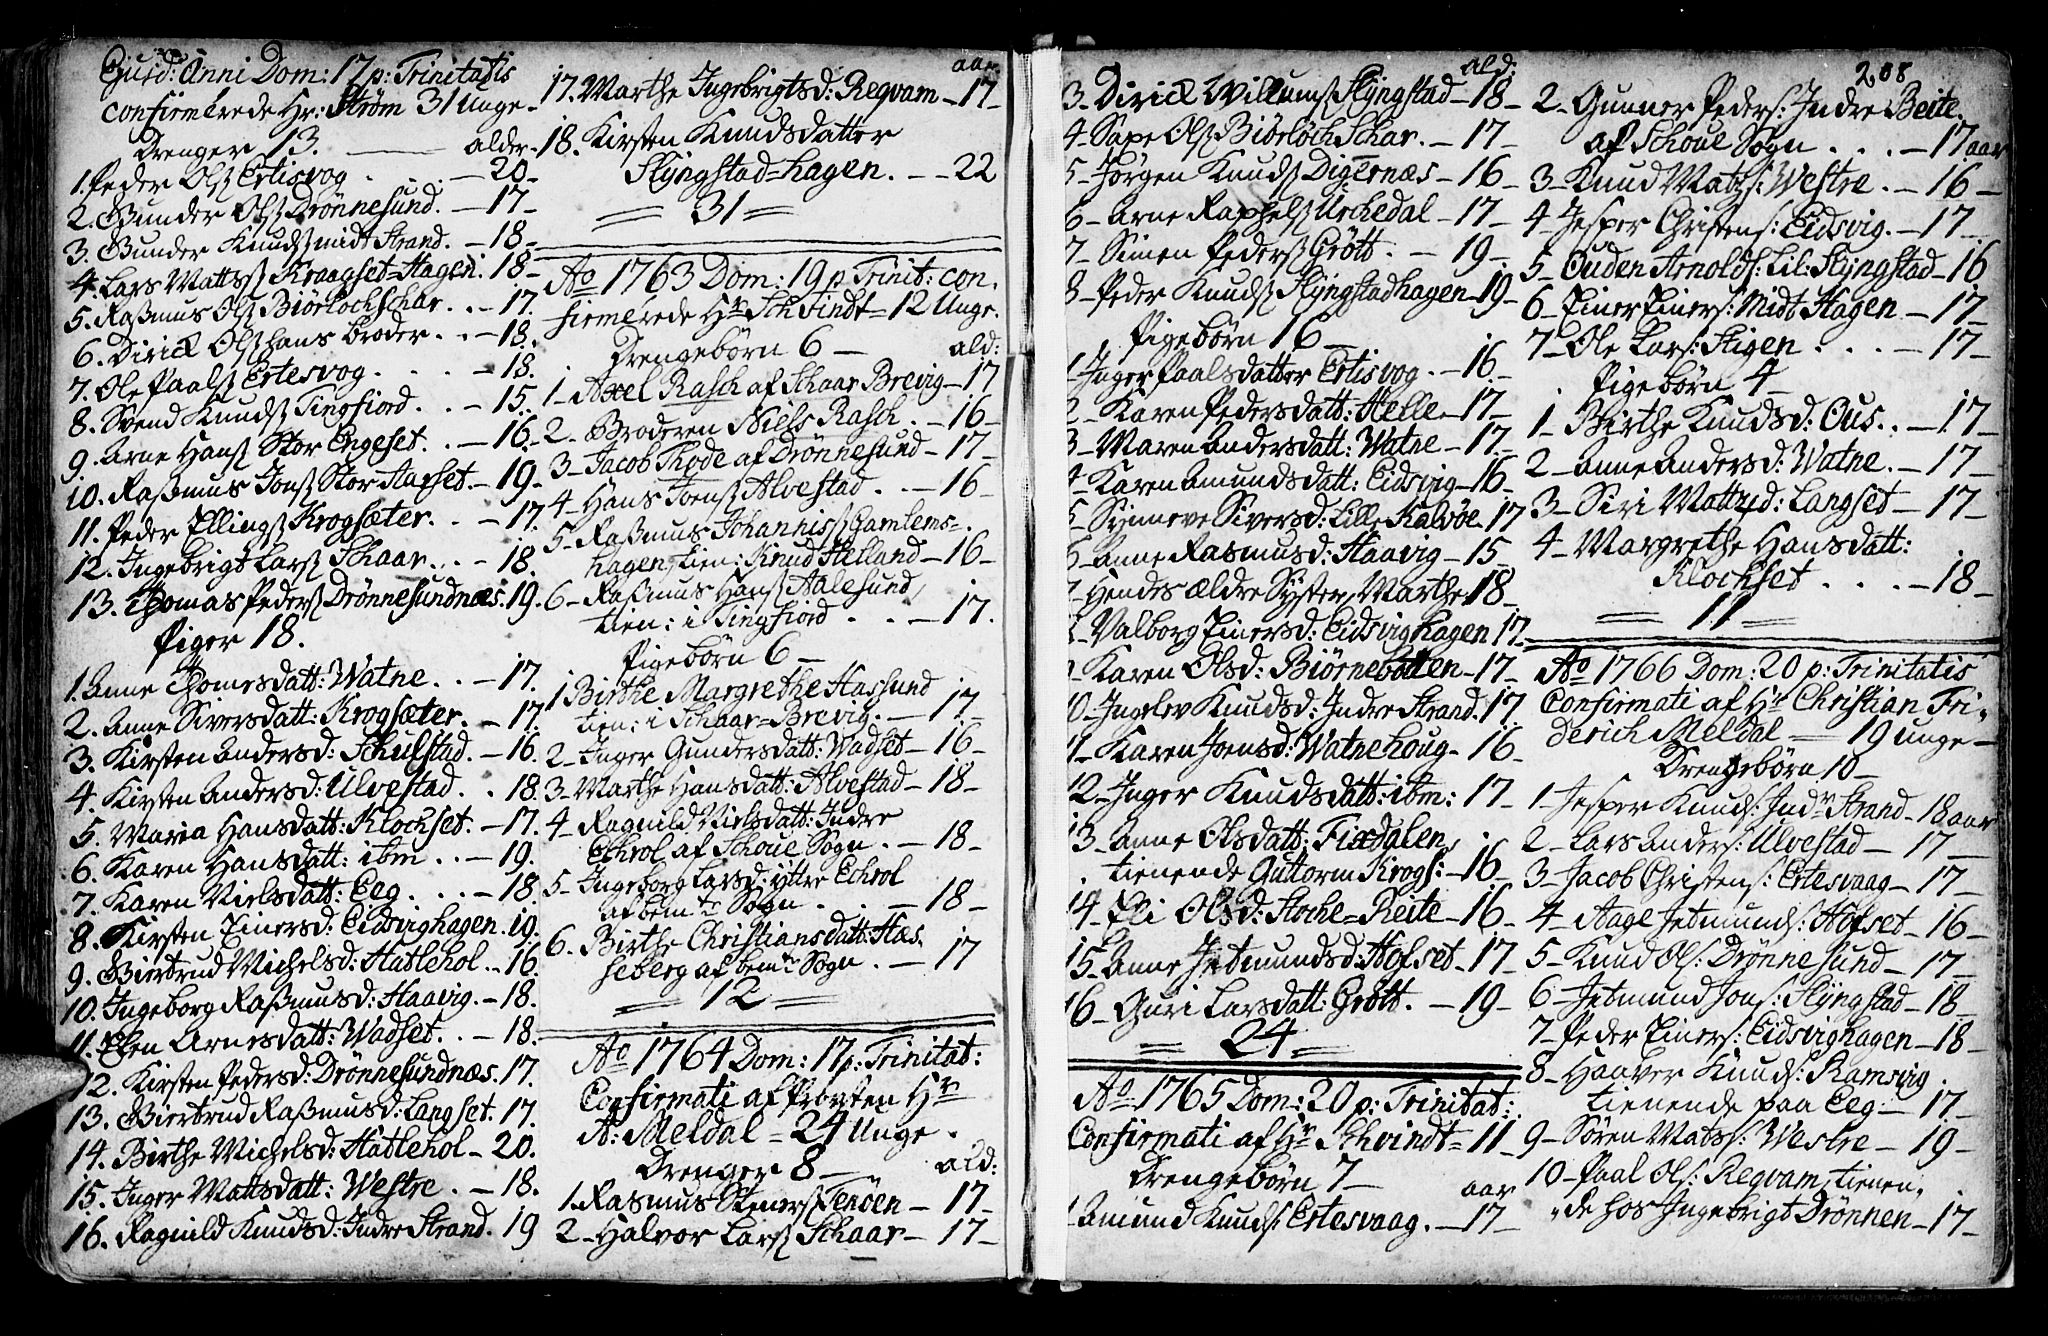 Ejusd: Anni Dom: 17 p: Trinitatis
confirmerede Hr: Strøm 31 Unge
Drenger 13. alder
1. Peder Ols Ertisvog 20
2. Gunder Ols Drönnesund. 17
3. Gunder Knuds midt Strand. 18
4. Lars Mattss Kraagset-Hagen. 18
5. Rasmus Ols Biörlochschar. 17.
6. Dirick Ols hans broder 18.
7. Ole Paals Ertesvog 18.
8. Svend Knuds Tingfiord 15.
9. Arne Hans Stor Engeset. 16.
10. Rasmus Jons Stor Aafset. 19.
11. Peder Ellings Krogsæter. 17.
12. Ingebrigt Lars Schaar 18.
13. Thomas Peders Drönnesundnæs. 19.
Piger 18.
1. Anne Thomesdatt: Watne 17.
2. Anne Siversdatt: Krogsæter. 17.
3. Kirsten Andersd: Schulstad. 16.
4. Kirsten Andersd: Ulvestad. 18.
5. Maria Hansdatt: Klochset. 17.
6. Karen Hansdatt: ibm 19.
7. Karen Nielsdatt: Eeg 18.
8. Kirsten Einersd: Eidsvighagen. 19.
9. Giertrud Michelsd: Hatlehol 16.
10. Ingeborg Rasmusd: Haavig. 18.
11. Elen Arnesdatt: Wadset. 18.
12. Kirsten Pedersd: Drönnesundnæs. 17.
13. Giertrud Rasmusd: Langset. 17.
14. Birthe Michelsd: Hatlehol 20.
15. Inger Mattsdatt: Westre 18.
16. Ragnild Knudsd: Indre Strand. 19
aar
17. Marthe Ingebrigtsd: Reqvam 17
18. Kirsten Knudsdatter
Slÿngstad=hagen. 22
31
Ao 1763 Dom: 19 p Trinit: con
firmerede Hr Schfindt 12 Unge.
Drengebörn 6 ald:
1 Axel Rasch af Schaar Brevig 17
2 Broderen Niels Rasch. 16
3 Jacob Thode af Drönnesund 17
4 Hans Joens Alvestad 16
5 Rasmus Johanniss Gamlems=
hagen, tien: Knud Helland 16
6 Rasmus Hans Aalesund,
tien: i Tingfiord 17.
Pigebörn 6
1 Birthe Margrethe Hassund
tien: i Schaar=Brevig. 17
2 Inger Gundersdatt: Vadset 16
3 Marthe Hansdatt: Alvestad 18
4 Ragnild Nielsdatt: Indre
Echrol af Schoue Sogn. 18
5 Ingeborg Larsd: ÿttre Echrol
af bemte Sogn 18
6. Birthe Christiansdatt: Hæs
seberg af bemte Sogn 17
12
Ao 1764 Dom: 17 p: Trinitat:
Confirmati af Provsten Hr
A: Meldal 24 Unge
Drenger 8 ald:
1. Rasmus Steners Tenöen 17
2 Halvor Lars Schaar 17
ald:
3. Dirick Willums Slÿngstad 18
4 Saxe Ols Biörlochschar. 17
5 Jörgen Knuds Digernæs 16
6 Arne Raphels Urchedal 17
7 Simen Peders Grött 19
8 Peder Knuds Slÿngstadhagen 19
Pigebörn 16
1 Inger Paalsdatter Ertisvog. 16
2 Karen Pedersdatt: Helle 17
3 Maren Andersdatt: Watne 17
4 Karen Amundsdatt: Eidsvig 16
5 Synneve Siversd: Lille Kalvöe 17
6 Anne Rasmusd: Haavig 15
7 Hendes ældre Syster, Marthe 18
8 Valborg Einersd: Eidsvighagen 17
9 Karen Olsd: Biörnebotten 17
10 Ingelev Knudsd: Indre Strand. 17
11 Karen Joensd: Watnehoug 16
12 Inger Knudsdatt: ibm: 17
13 Anne Olsdatt: Fixdalen,
tienende Guttorm Krogs: 16
14 Eli Olsd: Hoche=Reite 16
15 Anne Jetmundsd: Hofset 17
16 Guri Larsdatt: Grött. 19
24
Ao 1765 Dom: 20 p: Trinitat:
Confirmati af Hr Schvindt 11
Drengebörn 7 aar
1 Amund Knuds: Ertesvaag. 17
208
2 Gunner Peders: Indre Beite
af Schoue Sogn 17 aar
3 Knud Mats: Westre 16
4 Jesper Christens: Eidsvig. 17
5 Ouden Arnolds: Lil: Slÿngstad 16
6 Einer Einers: Midt Hagen 17
7 Ole Lars: Stigen 17
Pigebörn 4
1 Birthe Knudsd: Ous 17
2 Anne Andersd: Watne. 17
3 Siri Mattsd: Langset 17
4 Margrethe Hansdatt:
Klochset 18
11
Ao 1766 Dom: 20 p: Trinitatis
Confirmati af Hr Christian Fri
derich Meldal 19 unge
Drengebörn 10
1 Jesper Knuds: Indr Strand 18 aar
2 Lars Anders: Ulvestad 17
3 Jacob Christens: Ertesvaag 17
4 Aage Jetmunds: Hofset 16
5 Knud Ols: Drönnesund 17
6 Jetmund Jons: Slÿngstad 18
7 Peder Einers: Eidsvighagen 18
8 Haaver Knuds: Ramsvig
tienende paa Eeg 17
9 Sören Matss: Westre 19
10 Paal Ols: Reqvam, tienen
de hos Ingebrigt Drönnen 17